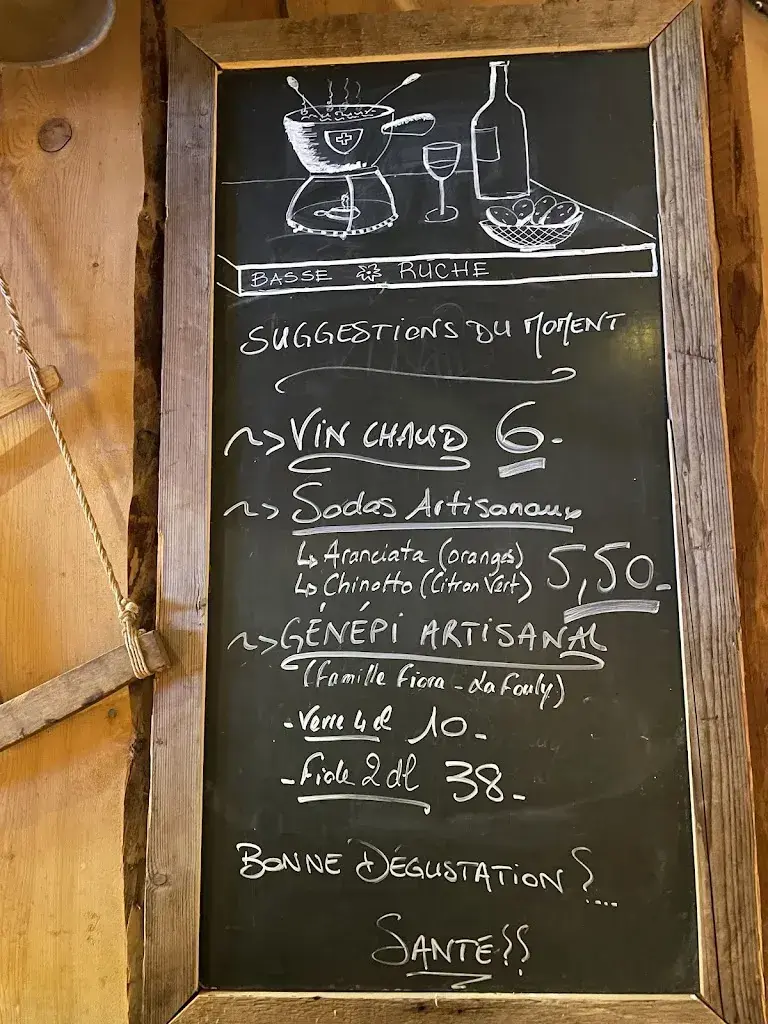 BASSE RUCHE
SUGGESTIONS DU MOMENT
~> VIN CHAUD 6.-
~> Sodas Artisanaux
↳ Aranciata (oranges) 5,50.-
↳ Chinotto (Citron Vert)
~> GÉNÉPI ARTISANAL
(famille Fiora - La Fouly)
- Verre 4 cl 10.-
- Fiole 2 dl 38.-
BONNE DÉGUSTATION !...
SANTÉ !!